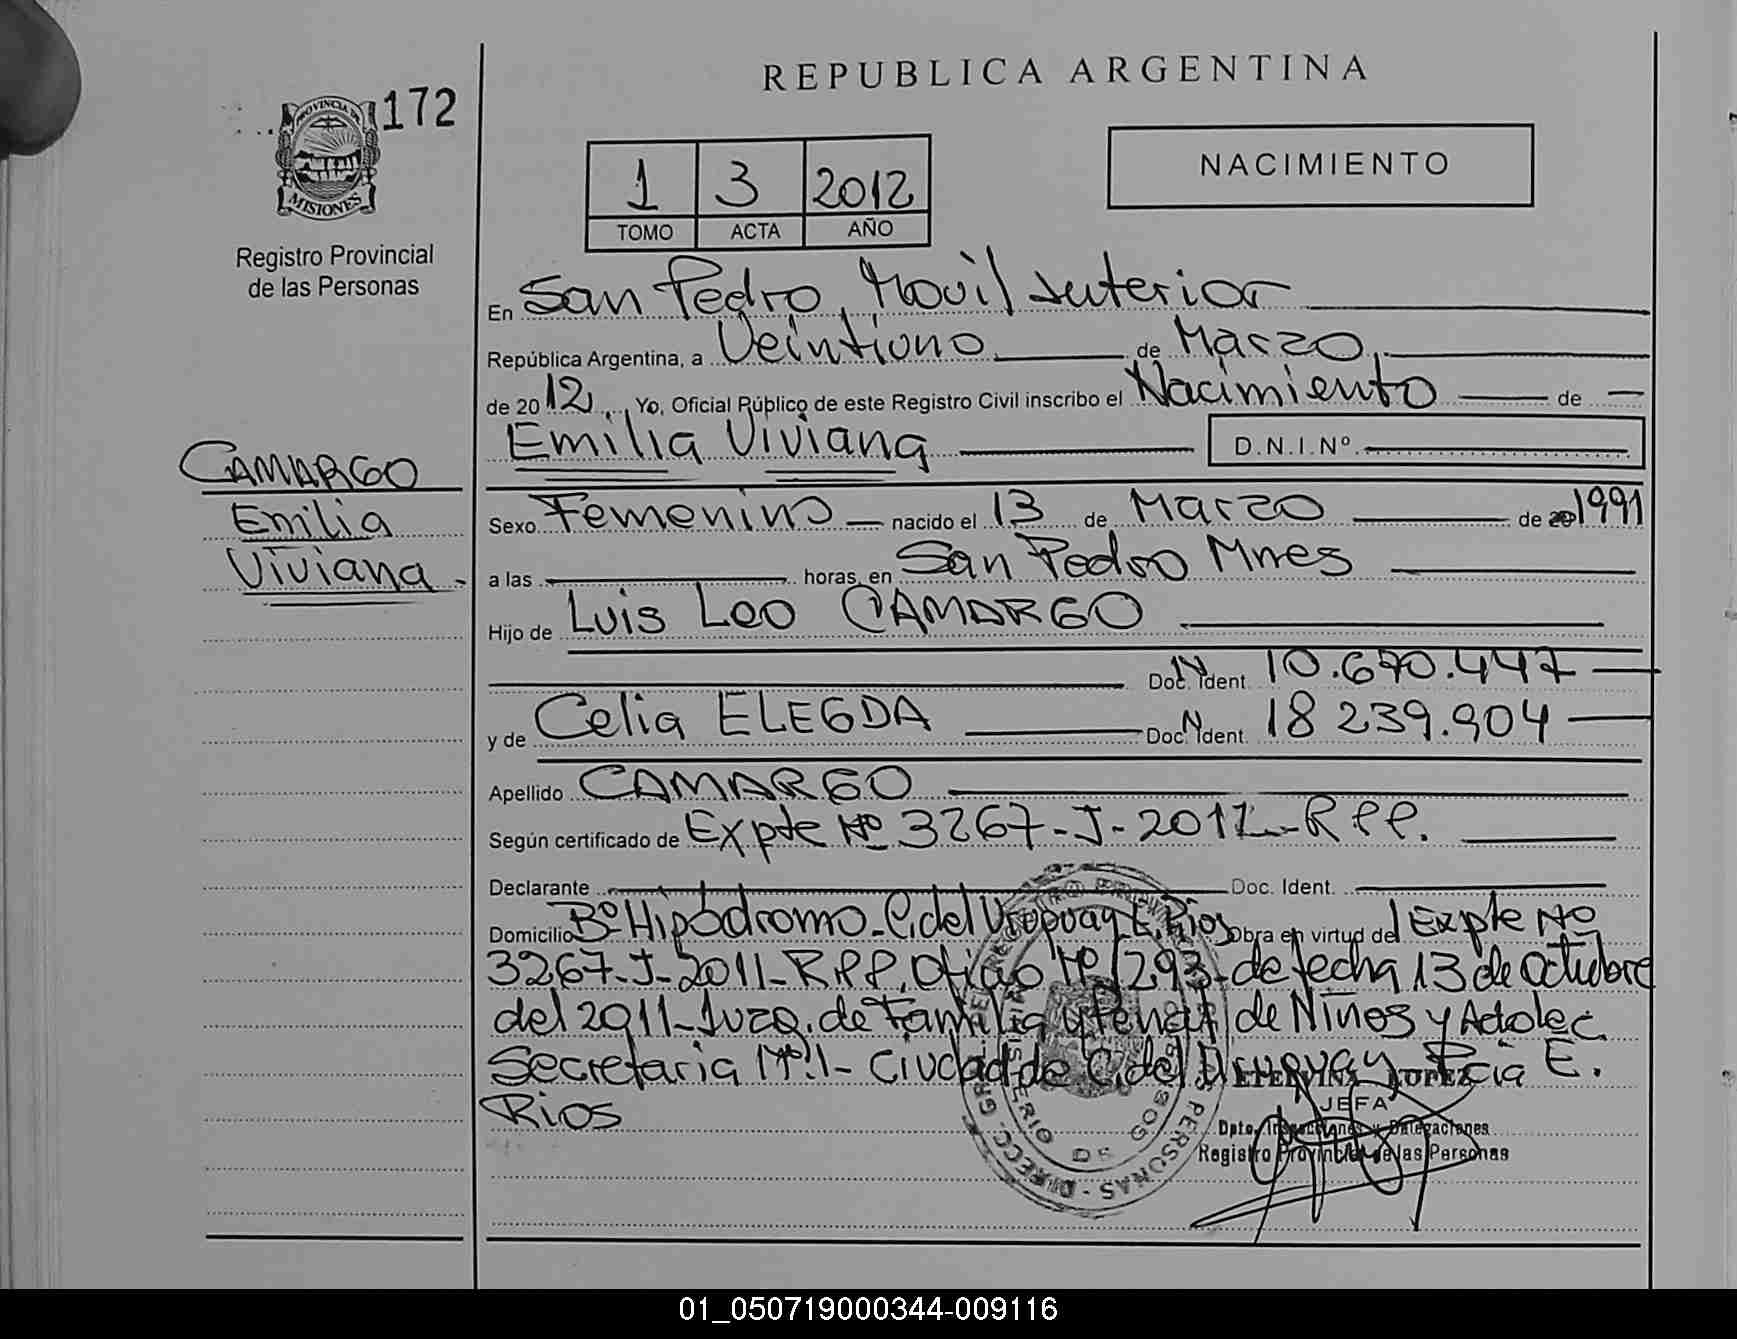 REPUBLICA ARGENTINA
172
PROVINCIA DE
MISIONES
Registro Provincial
de las Personas
NACIMIENTO
1 3 2012
TOMO ACTA AÑO
En San Pedro, Movil Interior
República Argentina, a Veintiuno de Marzo,
de 2012, Yo, Oficial Público de este Registro Civil inscribo el Nacimiento de
Emilia Viviana D.N.I.Nº
CAMARGO
Emilia
Viviana
Sexo Femenino nacido el 13 de Marzo de 1991
a las horas, en San Pedro Mnes
Hijo de Luis Leo CAMARGO
Doc. Ident. 10.670.447
y de Celia ELEGDA Doc. Ident. 18 239.904
Apellido CAMARGO
Según certificado de Expte Nº 3267-J-2011-RPP.
Declarante Doc. Ident.
Domicilio Bº Hipódromo-C.del Uruguay E. Rios Obra en virtud del Expte Nº
3267-J-2011-RPP, Oficio Nº 1293-de fecha 13 de Octubre
del 2011-Juzg. de Familia y Penal de Niños y Adolec
Secretaria Nº1- Ciudad de C.del Uruguay Pcia E.
Rios
LOPEZ
JEFA
Dpto. Inspecciones y Delegaciones
Registro Provincial de las Personas
01_050719000344-009116